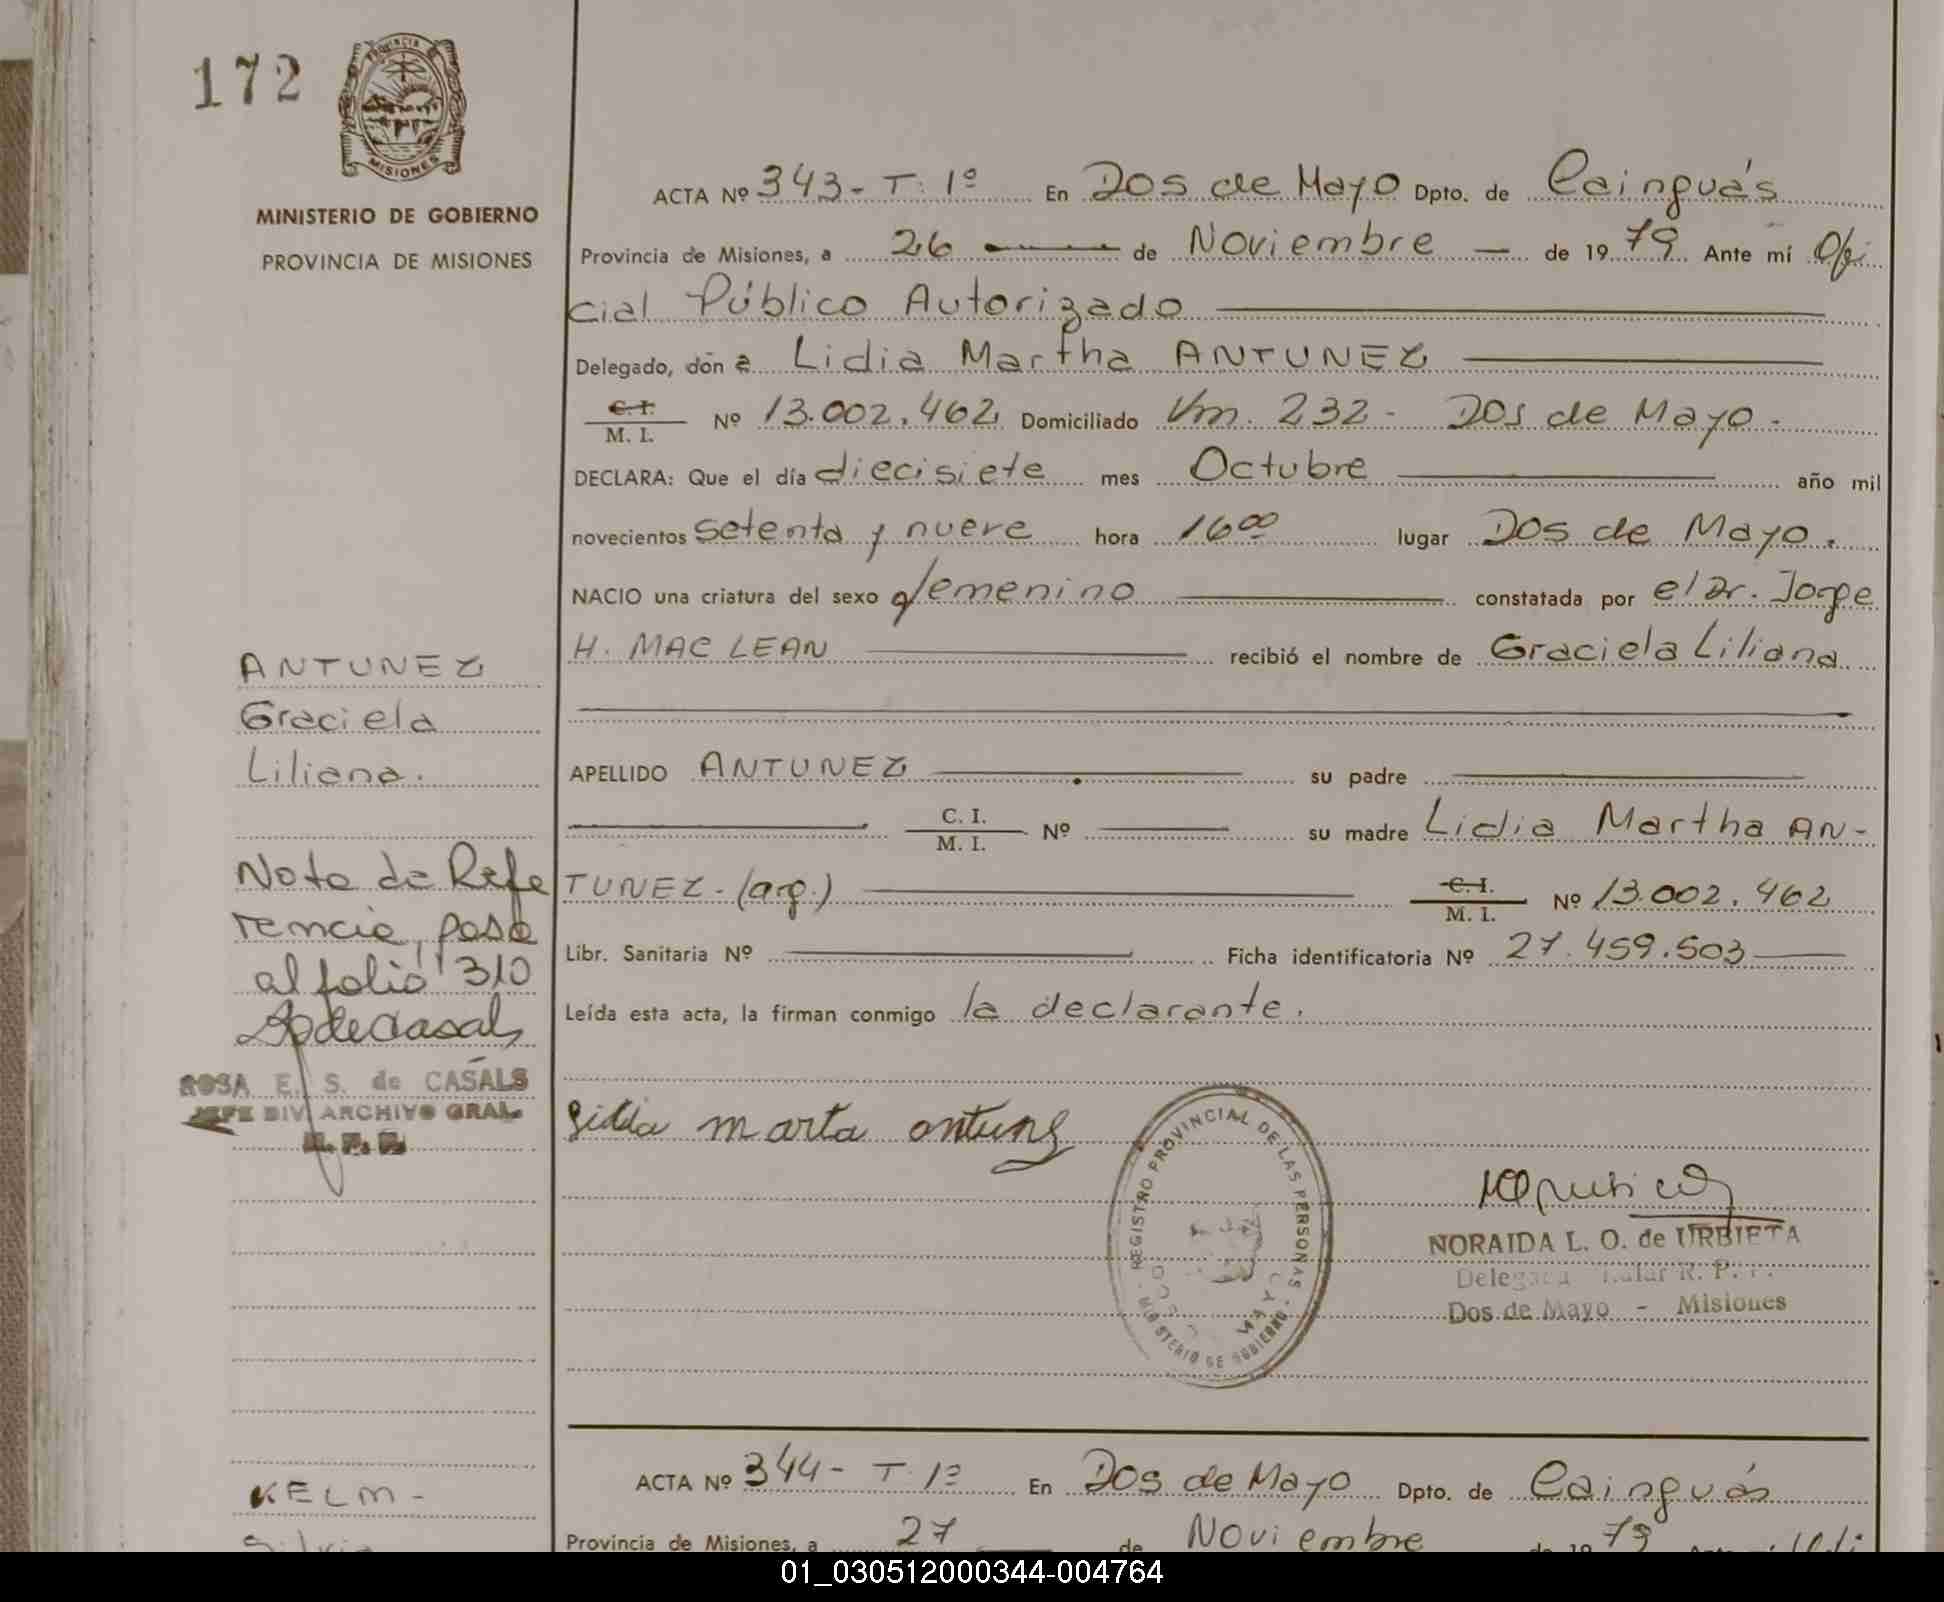 172
PROVINCIA DE
MISIONES
MINISTERIO DE GOBIERNO
PROVINCIA DE MISIONES
ACTA Nº 343- T. 1º En Dos de Mayo Dpto. de Cainguás
Provincia de Misiones, a 26 de Noviembre de 1979 Ante mí Ofi
cial Público Autorizado
Delegado, don a Lidia Martha ANTUNEZ
C. I.
M. I. Nº 13.002.462 Domiciliado Km. 232- Dos de Mayo.
DECLARA: Que el día diecisiete mes Octubre año mil
novecientos setenta y nueve hora 16⁰⁰ lugar Dos de Mayo.
NACIO una criatura del sexo femenino constatada por el Dr. Jorge
H. MAC LEAN recibió el nombre de Graciela Liliana
APELLIDO ANTUNEZ su padre
C. I.
M. I. Nº su madre Lidia Martha AN-
TUNEZ-(arg.) C. I.
M. I. Nº 13.002.462
Libr. Sanitaria Nº Ficha identificatoria Nº 27.459.503
Leída esta acta, la firman conmigo la declarante.
ANTUNEZ
Graciela
Liliana.
Nota de Refe
rencia, pasa
al folio 310
ROSA E. S. de CASALS
JEFE DIV. ARCHIVO GRAL.
marta
REGISTRO PROVINCIAL DE LAS PERSONAS
MINISTERIO DE GOBIERNO
NORAIDA L. O. de URBIETA
Dos de Mayo - Misiones
ACTA Nº 344- T. 1º En Dos de Mayo Dpto. de Cainguás
Provincia de Misiones, a 27 de Noviembre de 1979
KELM-
Silvia
01_030512000344-004764